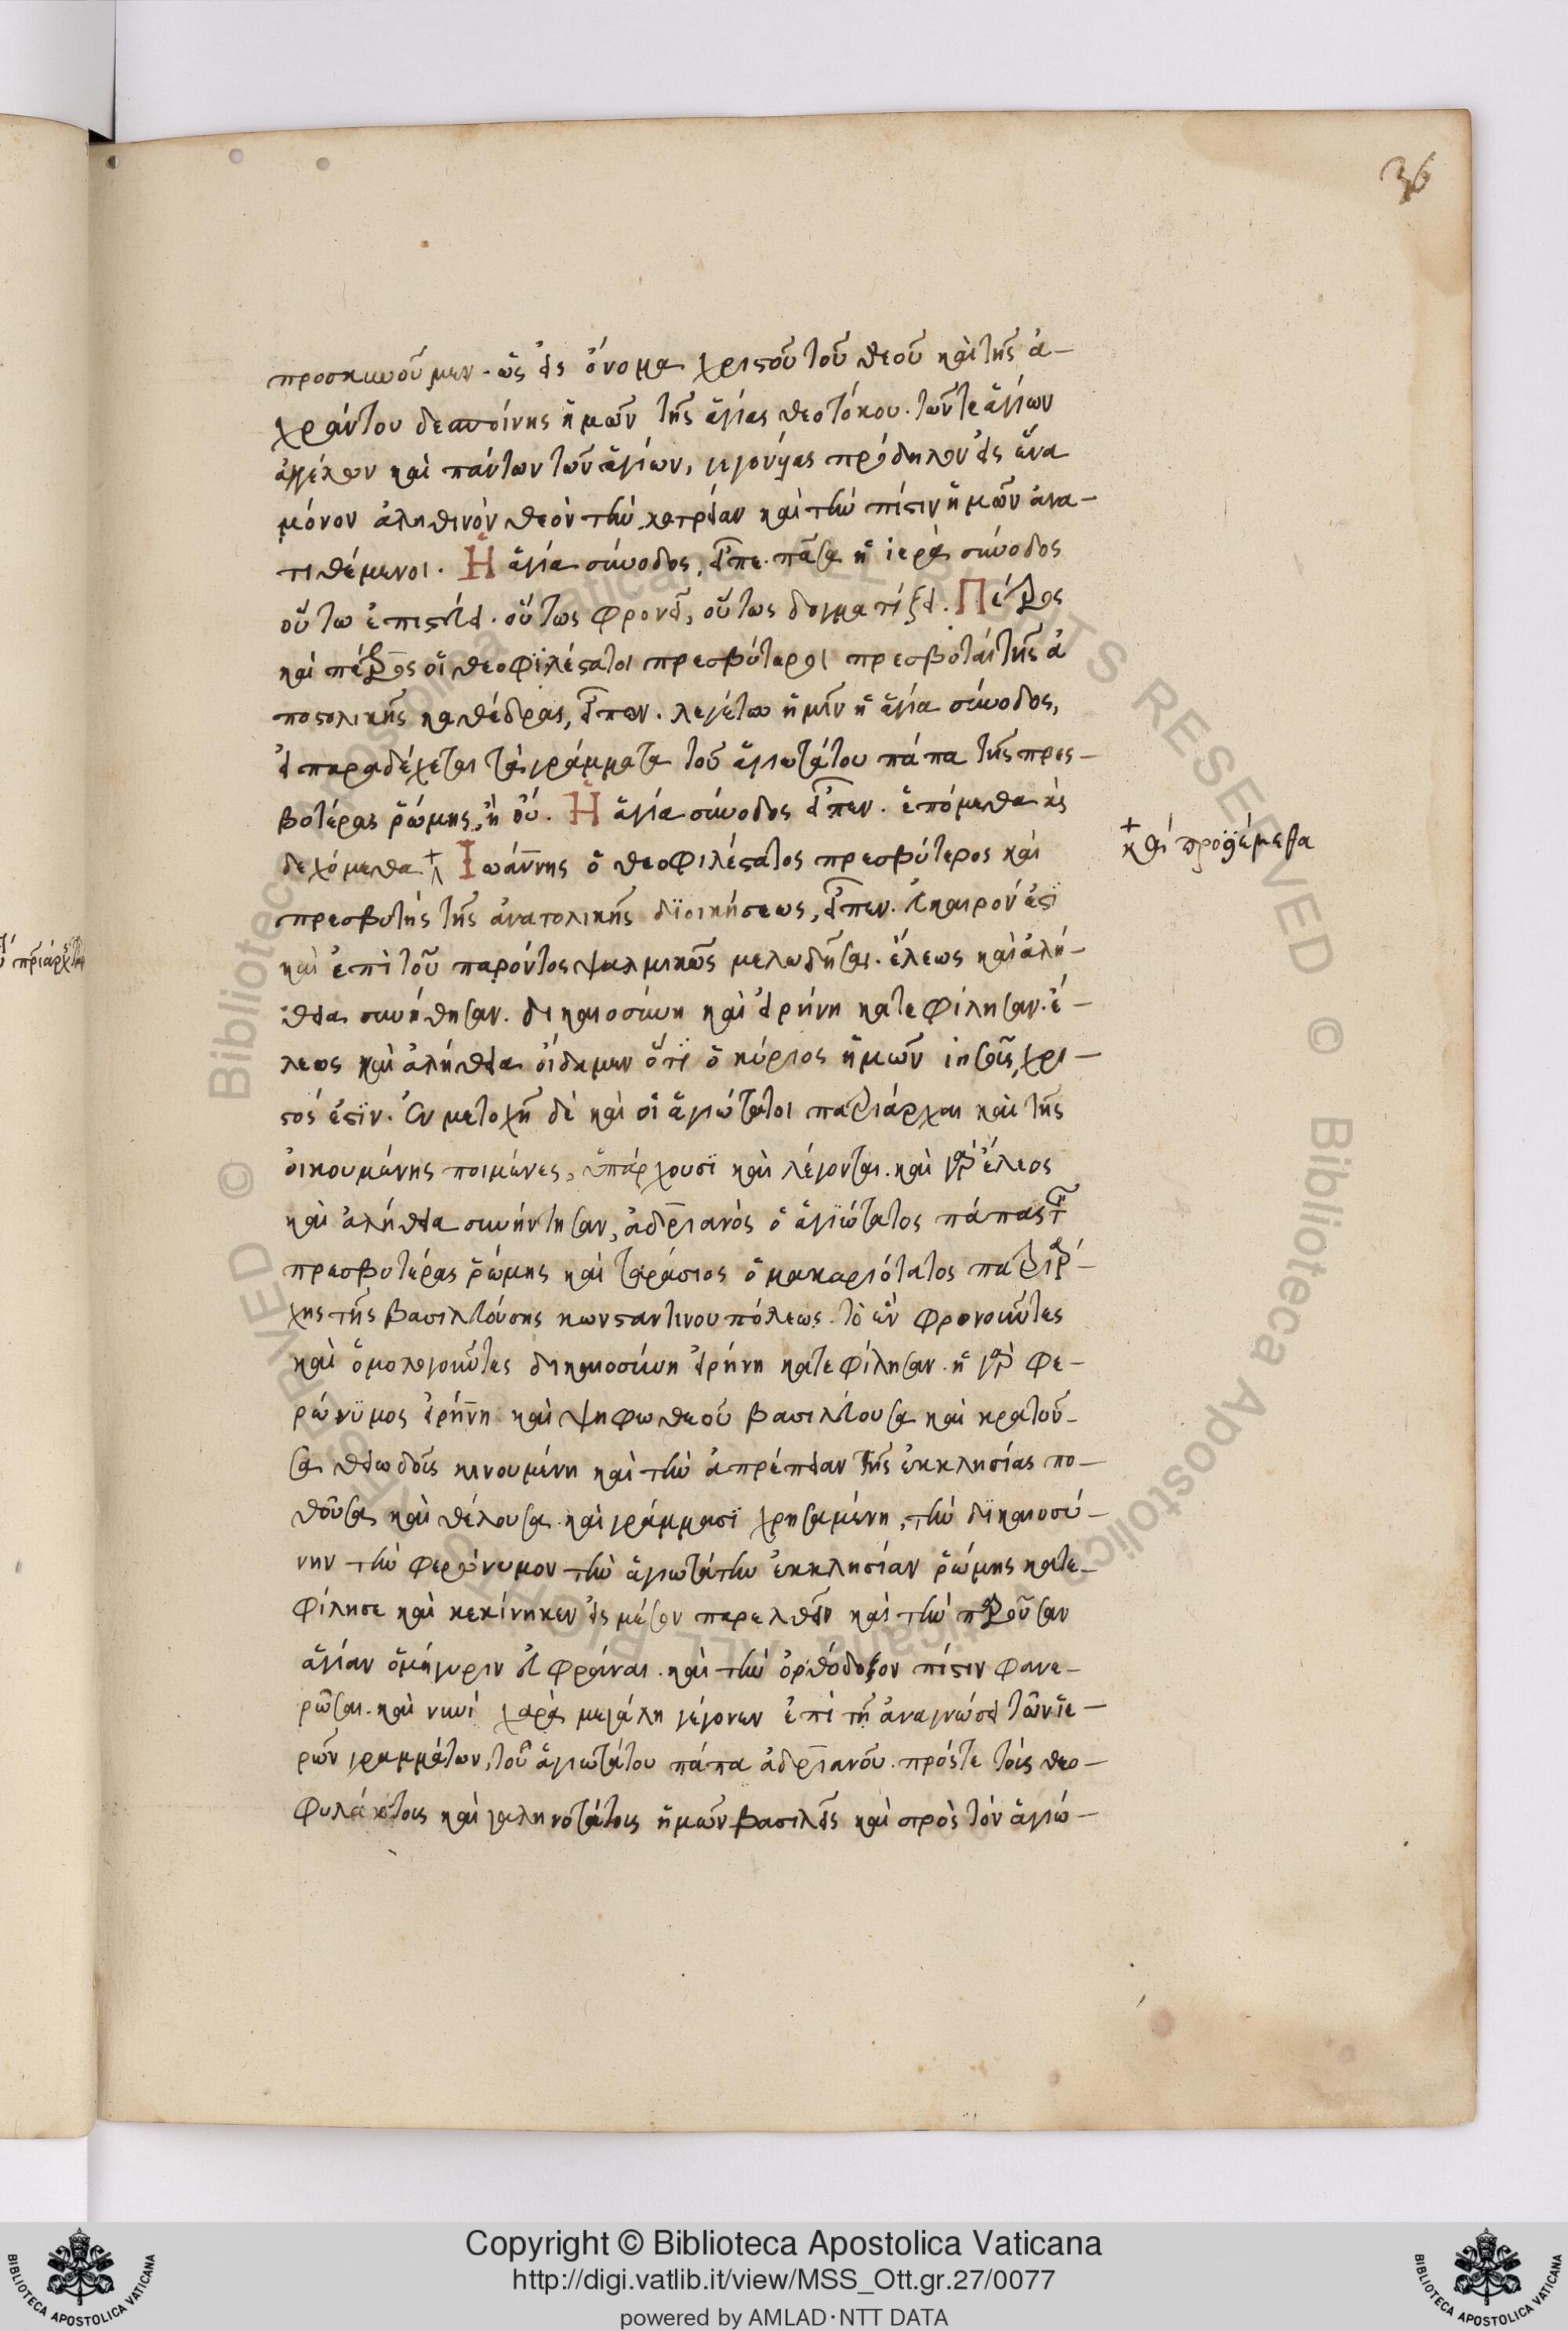 36
προσκυνοῦμεν. ὡς εἰς ὄνομα χριστοῦ τοῦ θεοῦ καὶ τῆς ἀ-
χράντου δεσποίνης ἡμῶν τῆς ἁγίας θεοτόκου. τῶν τε ἁγίων
ἀγγέλων καὶ πάντων τῶν ἁγίων, πρόδηλον εἰς ἕνα
μόνον ἀληθινὸν θεὸν τὴν λατρείαν καὶ τὴν πίστιν ἡμῶν ἀνα-
τιθέμενοι. Ἡ ἁγία σύνοδος, εἶπε. πᾶσα ἡ ἱερὰ σύνοδος
οὕτω πιστεύει. οὕτως φρονεῖ, οὕτως δογματίζει. Πέτρος
καὶ πέτρος οἱ θεοφιλέστατοι πρεσβύτεροι πρεσβυταὶ τῆς ἀ
ποστολικῆς καθέδρας, εἶπον. λεγέτω ἡμῖν ἡ ἁγία σύνοδος,
εἰ παραδέχεται τὰ γράμματα τοῦ ἁγιωτάτου πάπα τῆς πρεσ-
βυτέρας ῥώμης, ἢ οὔ. Ἡ ἁγία σύνοδος εἶπεν. ἑπόμεθα καὶ
δεχόμεθα + Ἰωάννης ὁ θεοφιλέστατος πρεσβύτερος καὶ
πρεσβυτὴς τῆς ἀνατολικῆς διοικήσεως, εἶπεν. εὔκαιρόν ἐστι
καὶ ἐπὶ τοῦ παρόντος ψαλμικῶς μελωδῆσαι. ἔλεως καὶ ἀλή-
θεια συνήθησαν. δικαιοσύνη καὶ εἰρήνη κατεφίλησαν. ἔ-
λεως καὶ ἀλήθεια οἴδαμεν ὅτι ὁ κύριος ἡμῶν ἰησοῦς χρι-
στός ἐστιν. Ἐν μετοχῇ δὲ καὶ οἱ ἁγιώτατοι πατριάρχαι καὶ τῆς
οἰκουμένης ποιμένες, ὑπάρχουσι καὶ λέγονται. καὶ γὰρ ἔλεος
καὶ ἀλήθεια συνήντησαν, ἀδριανὸς ὁ ἁγιώτατος πάπας τῆς
πρεσβυτέρας ῥώμης καὶ ταράσιος ὁ μακαριότατος πατριάρ-
χης τῆς βασιλευούσης κωνσταντινουπόλεως. τὸ ἓν φρονοῦντες
καὶ ὁμολογοῦντες δικαιοσύνη εἰρήνη κατεφίλησαν. ἡ γὰρ φε-
ρώνυμος εἰρήνη καὶ ψήφω θεοῦ βασιλεύουσα καὶ κρατοῦ-
σα θειωδῶς κινουμένη καὶ τὴν εὐπρέπειαν τῆς ἐκκλησίας πο-
θοῦσα καὶ θέλουσα. καὶ γράμμασι χρησαμένη, τὴν δικαιοσύ-
νην τὴν φερώνυμον τὴν ἁγιωτάτην ἐκκλησίαν ῥώμης κατε-
φίλησε καὶ κεκίνηκεν εἰς μέσον παρελθεῖν καὶ τὴν παροῦσαν
ἁγίαν ὁμήγυριν εὐφράναι. καὶ τὴν ὀρθόδοξον πίστιν φανε-
ρῶσαι. καὶ νυνὶ χαρὰ μεγάλη γέγονεν ἐπὶ τῇ ἀναγνώσει τῶν ἱε-
ρῶν γραμμάτων, τοῦ ἁγιωτάτου πάπα ἀδριανοῦ. πρός τε τοὺς θεο-
φυλάκτους καὶ γαληνοτάτους ἡμῶν βασιλεῖς καὶ πρὸς τὸν ἁγιώ-
+ καὶ προϊέμεθα
© Biblioteca Apostolica Vaticana ALL RIGHTS RESERVED © Biblioteca Apostolica Vaticana ALL RIGHTS RESERVED
BIBLIOTECA APOSTOLICA VATICANA
Copyright © Biblioteca Apostolica Vaticana
http://digi.vatlib.it/view/MSS_Ott.gr.27/0077
powered by AMLAD·NTT DATA
BIBLIOTECA APOSTOLICA VATICANA